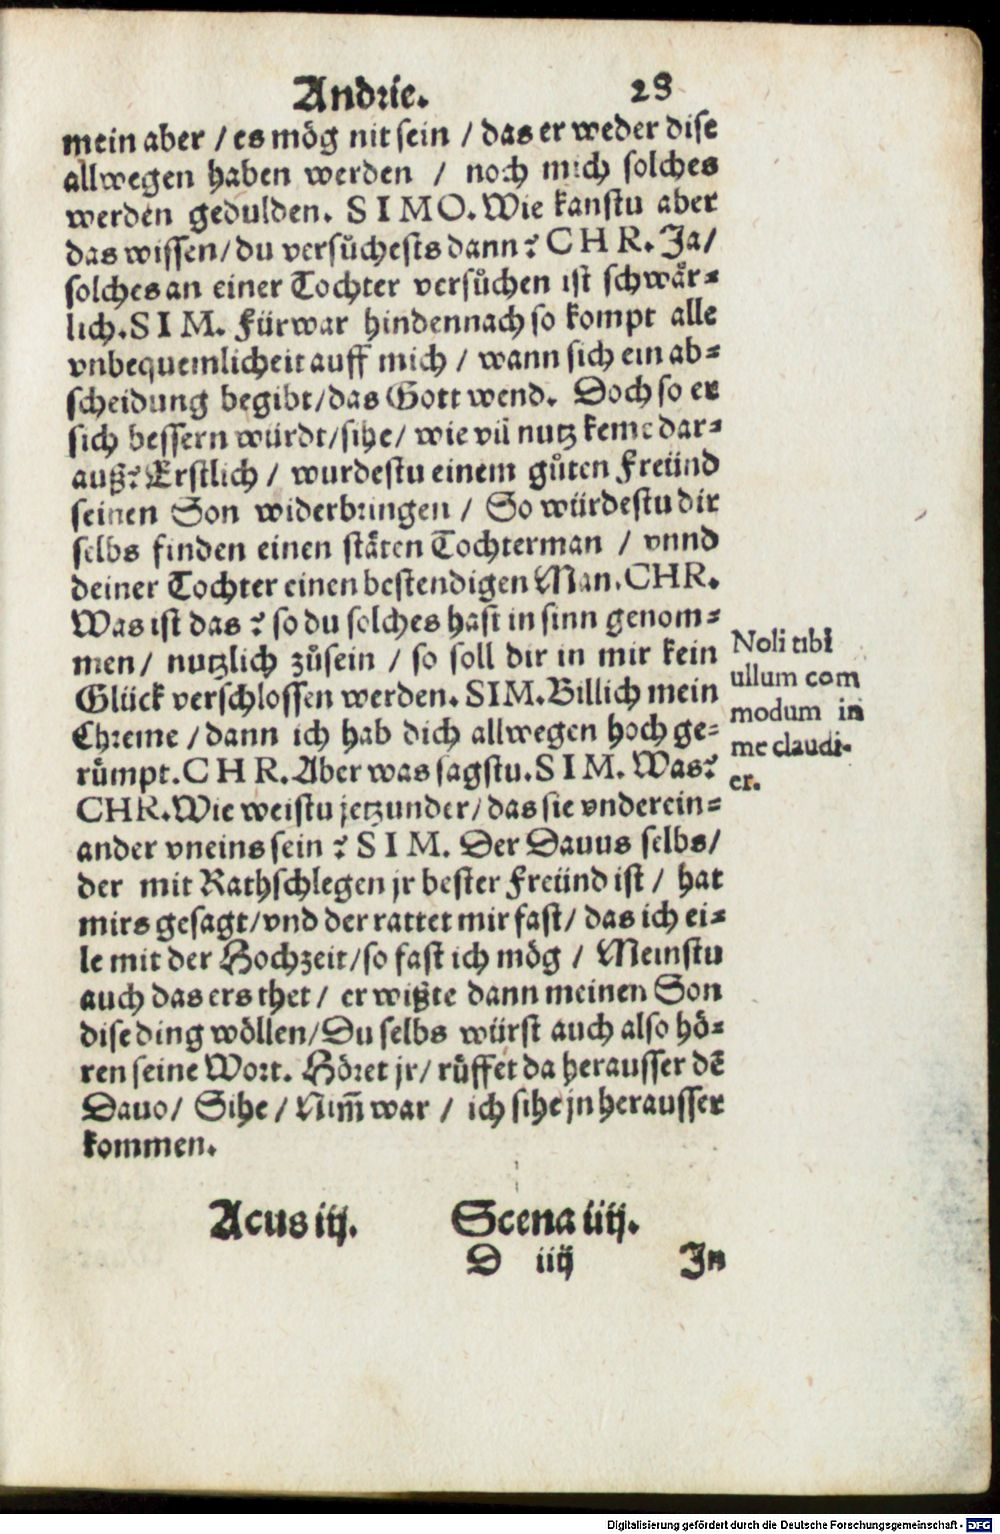 Andrie. 28
mein aber / es mög nit sein / das er weder dise
allwegen haben werden / noch mich solches
werden gedulden. SIMO. Wie kanstu aber
das wissen / du versůchests dann? CHR. Ja /
solches an einer Tochter versůchen ist schwår-
lich. SIM. Fürwar hindennach so kompt alle
vnbequemlicheit auff mich / wann sich ein ab-
scheidung begibt / das Gott wend. Doch so er
sich bessern würdt / sihe / wie vil nutz keme dar-
auß? Erstlich / wurdestu einem gůten Freünd
seinen Son widerbringen / So würdestu dir
selbs finden einen ståten Tochterman / vnnd
deiner Tochter einen bestendigen Man. CHR.
Was ist das? so du solches hast in sinn genom-
men / nutzlich zůsein / so soll dir in mir kein
Glück verschlossen werden. SIM. Billich mein
Chreme / dann ich hab dich allwegen hoch ge-
růmpt. CHR. Aber was sagstu. SIM. Was?
CHR. Wie weistu jetzunder / das sie vnderein-
ander vneins sein? SIM. Der Dauus selbs /
der mit Rathschlegen jr bester Freünd ist / hat
mirs gesagt / vnd der rattet mir fast / das ich ei-
le mit der Hochzeit / so fast ich mög / Meinstu
auch das ers thet / er wißte dann meinen Son
dise ding wöllen / Du selbs würst auch also hö-
ren seine Wort. Höret jr / růffet da herausser dē
Dauo / Sihe / Nim̄ war / ich sihe jn herausser
kommen.
Noli tibi
ullum com
modum in
me claudi-
er.
Acus iij. Scena iiij.
D iiij In
Digitalisierung gefördert durch die Deutsche Forschungsgemeinschaft - DFG